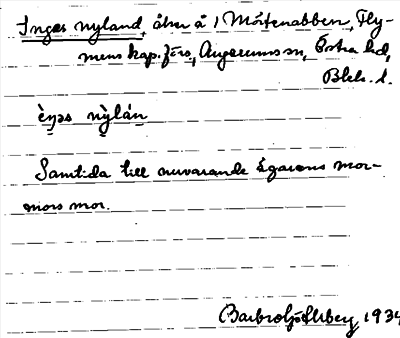 Ingas nyland, åker å 1 Mårtenabben, Fly-
mens kap.förs, Augerums sn, Östra hd,
Blek. l.
èŋas nỳlán
Samtida till nuvarande ägarens mor-
mors mor.
1934